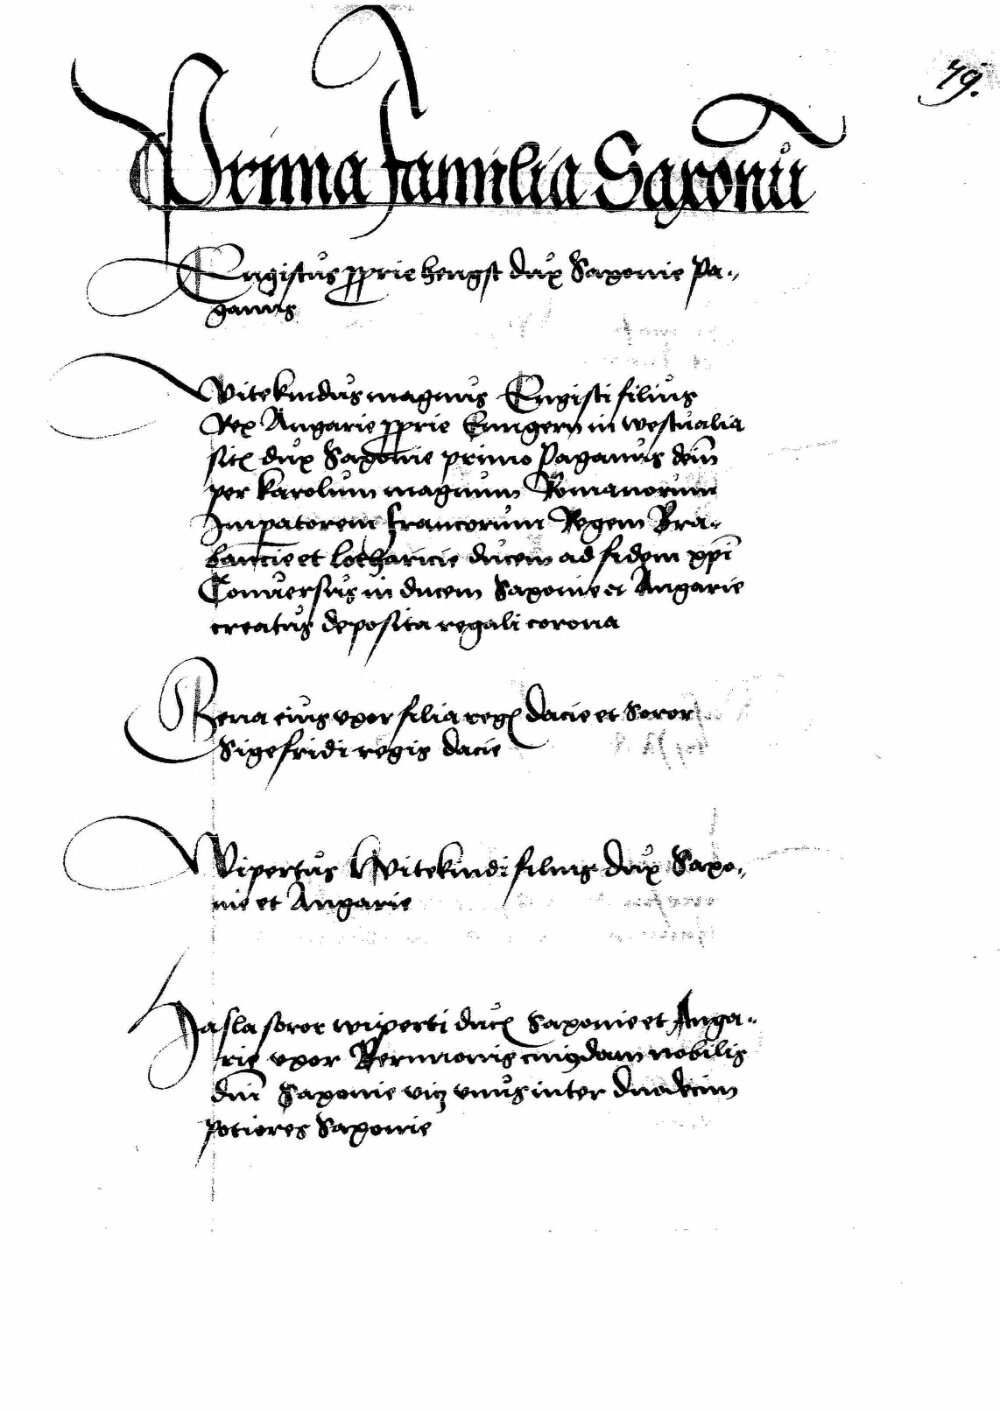 79.
Prima familia Saxonu
Engistus pprie hengst dux Saxonie Pa-
ganus
Witekindus magnus Engisti filius
Rex Angarie pprie Enngern in westualia
dux Saxonie primo Paganus dein
per karolum magnum Romanorum
Impatorem francorum Regem Bra-
bancie et lotharicie ducem ad fidem xpi
Conuersus in ducem Saxonie et Angarie
creatus deposita regali corona
Gena eius vxor filia reg dacie et Soror
Sigefridi regis dacie
Wipertus Witekindi filius dux Saxo-
nie et Angarie
Hasla soror wiperti duc Saxonie et Anga-
rie vxor Bernnonis cuiusdam nobilis
dni Saxonie viz vnus inter duodecim
potiores Saxonie